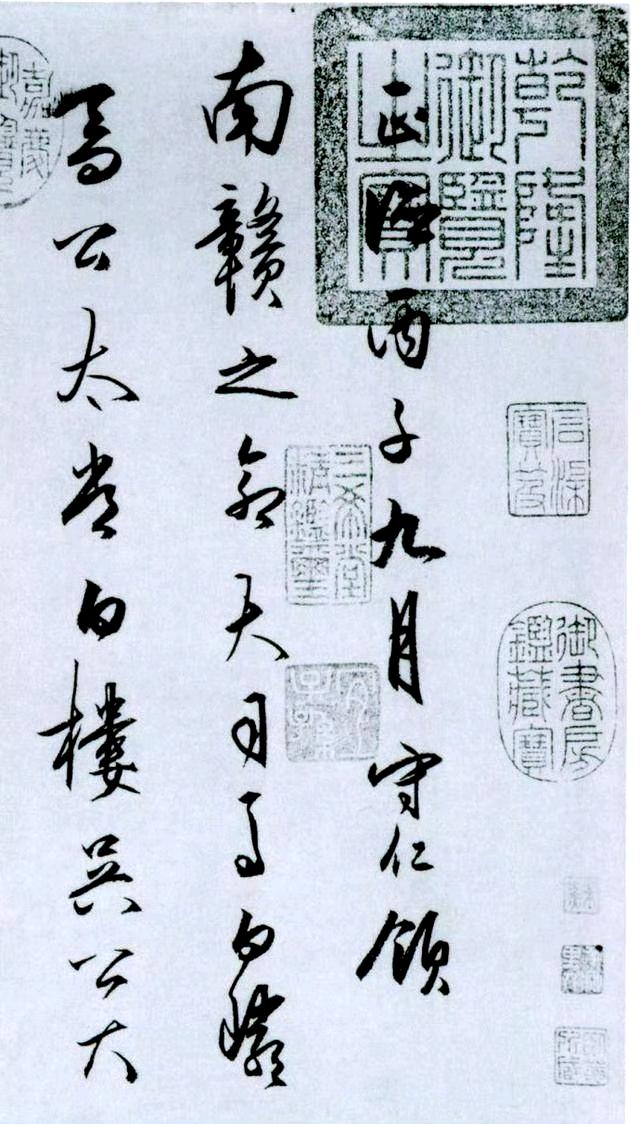 乾隆御覽之寶
石渠寶笈
御書房鑑藏寶
正德丙子九月守仁領
三希堂精鑑璽
宜子孫
南贛之命大司馬白巖
喬公太常白樓吳公大
嘉慶御覽